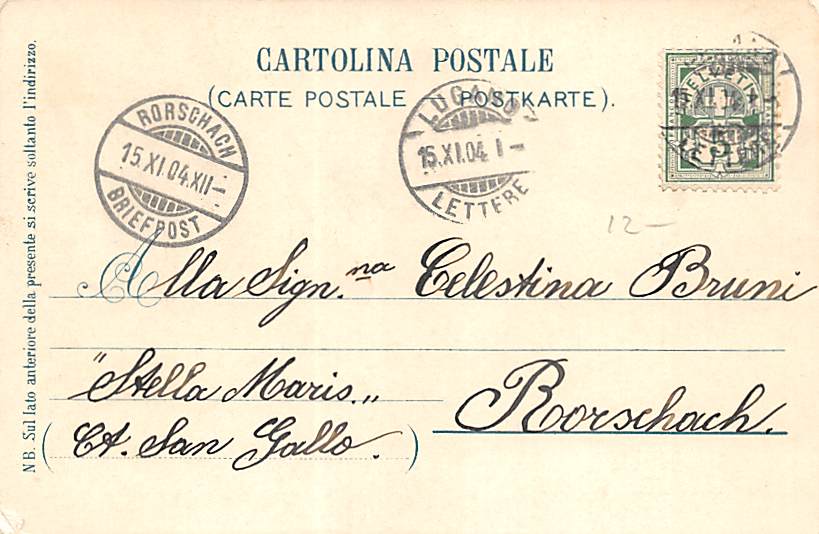 CARTOLINA POSTALE
(CARTE POSTALE POSTKARTE).
RORSCHACH
15.XI.04.XII-
BRIEFPOST
LUGANO
15.XI.04. I-
LETTERE
HELVETIA
15.XI.04
5
LETTERE
12-
Alla Sign.na Celestina Bruni
"Stella Maris„
Rorschach.
(Ct. San Gallo.)
NB. Sul lato anteriore della presente si scrive soltanto l'indirizzo.